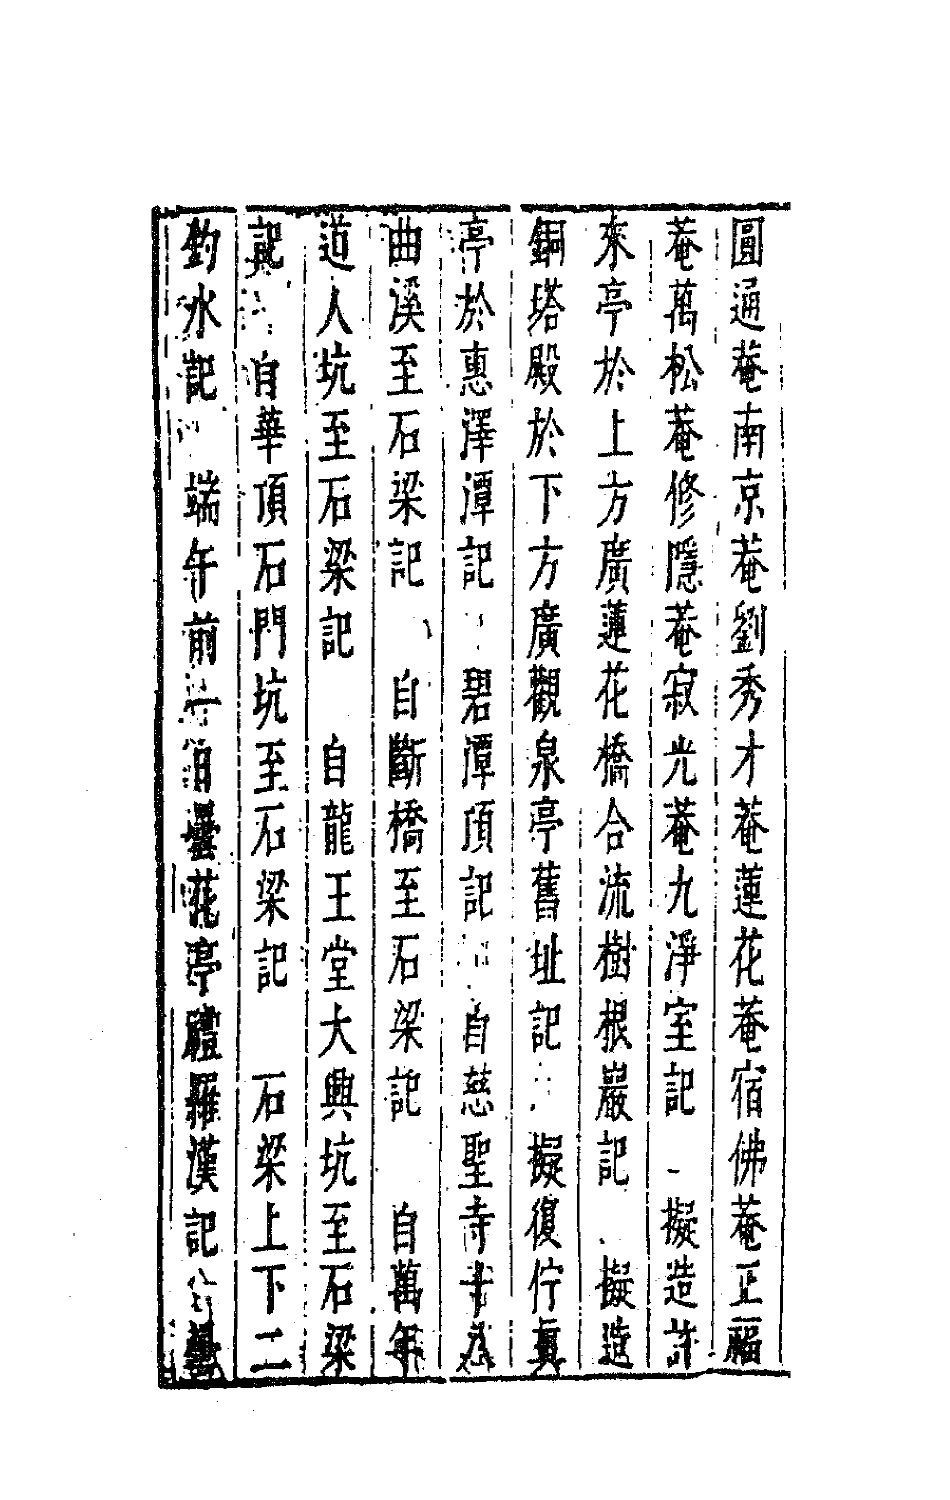 圓通菴南京菴劉秀才菴蓮花菴宿佛菴正福
菴萬松菴修隱菴寂光菴九淨室記 擬造許
來亭於上方廣蓮花橋合流樹根巖記 擬造
銅塔殿於下方廣觀泉亭舊址記 擬復佇真
亭於惠澤潭記 碧潭頂記 自慈聖寺十八
曲溪至石梁記 自斷橋至石梁記 自萬年
道人坑至石梁記 自龍王堂大興坑至石梁
記 自華頂石門坑至石梁記 石梁上下二
釣水記 端午前一日曇花亭禮羅漢記 曇